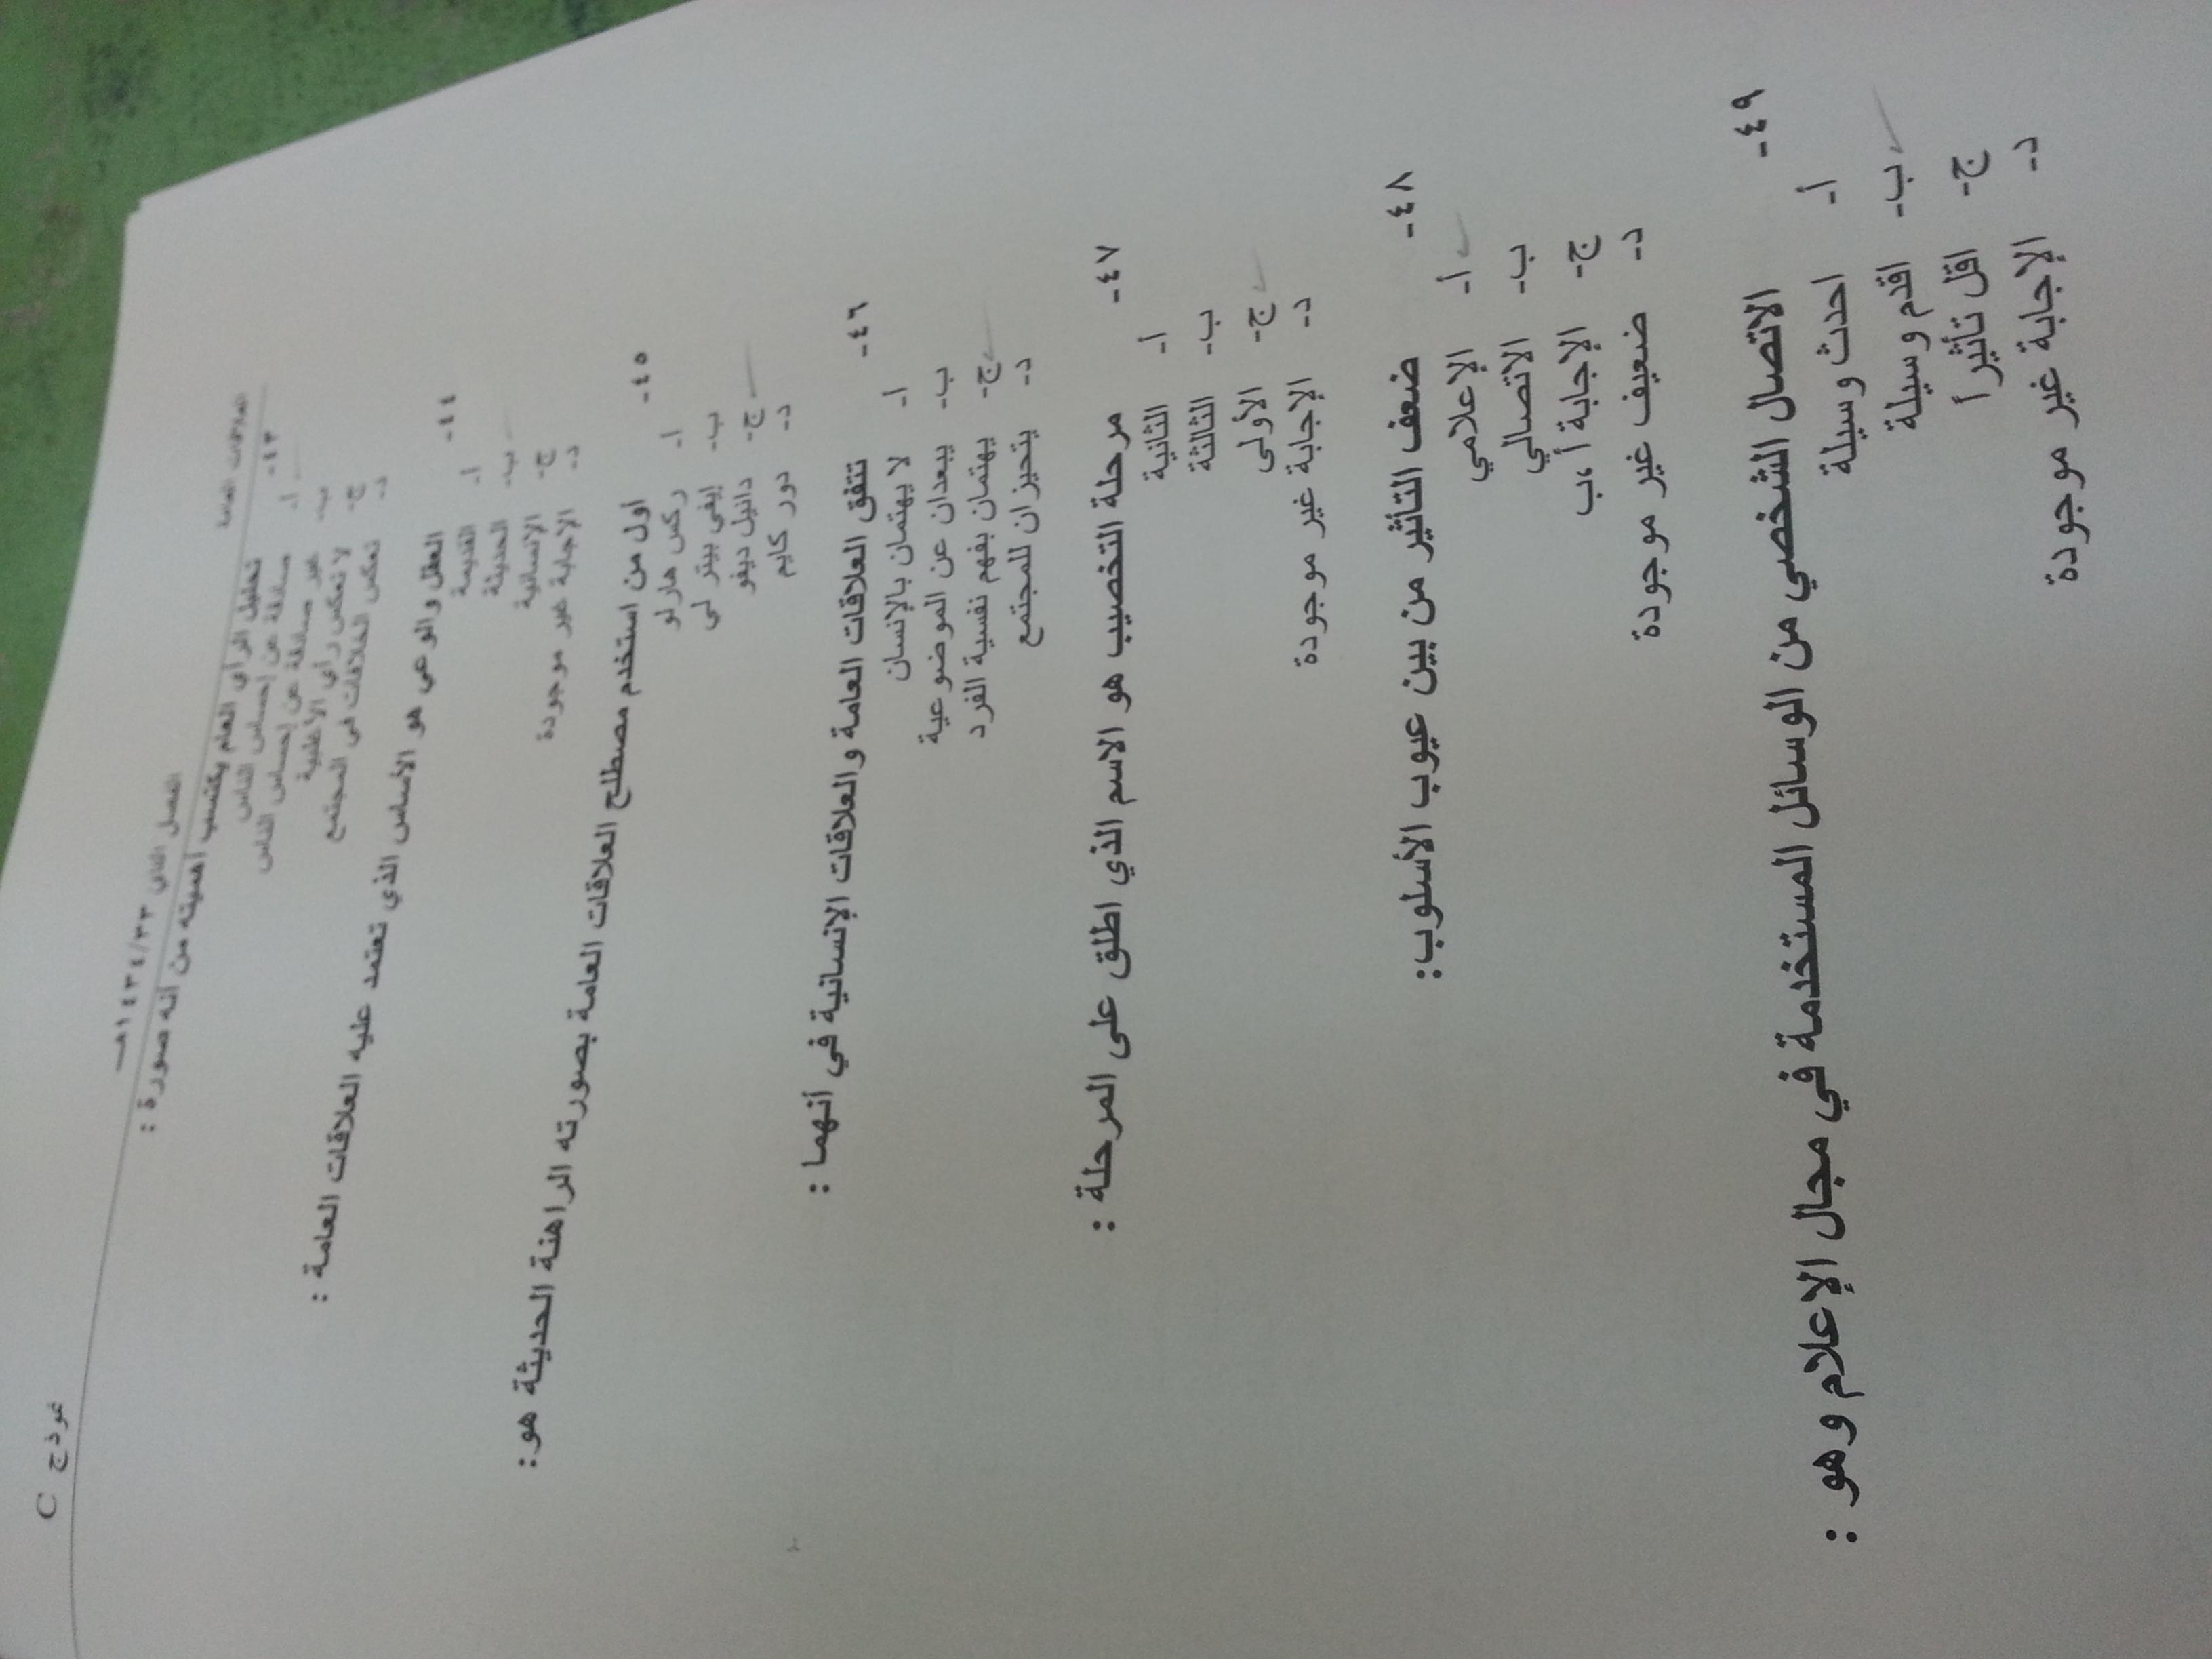 العلاقات العامة
الفصل الثاني ١٤٣٤/٣٣هـ
نموذج C
٤٣- تحليل الرأي العام يكتسب أهميته من أنه صورة :
أ- صادقة عن إحساس الناس
ب- غير صادقة عن إحساس الناس
ج- لا تعكس رأي الأغلبية
د- تعكس الخلافات في المجتمع
٤٤- العقل والوعي هو الأساس الذي تعتمد عليه العلاقات العامة :
أ- القديمة
ب- الحديثة
ج- الإنسانية
د- الإجابة غير موجودة
٤٥- أول من استخدم مصطلح العلاقات العامة بصورته الراهنة الحديثة هو:
أ- ركس هارلو
ب- إيفي بيتر لي
ج- دانيل ديفو
د- دور كايم
٤٦- تتفق العلاقات العامة والعلاقات الإنسانية في أنهما :
أ- لا يهتمان بالإنسان
ب- يبعدان عن الموضوعية
ج- يهتمان بفهم نفسية الفرد
د- يتحيزان للمجتمع
٤٧- مرحلة التخصيب هو الاسم الذي اطلق على المرحلة :
أ- الثانية
ب- الثالثة
ج- الأولى
د- الإجابة غير موجودة
٤٨- ضعف التأثير من بين عيوب الأسلوب:
أ- الإعلامي
ب- الاتصالي
ج- الإجابة أ ،ب
د- ضعيف غير موجودة
٤٩- الاتصال الشخصي من الوسائل المستخدمة في مجال الإعلام وهو :
أ- احدث وسيلة
ب- اقدم وسيلة
ج- اقل تأثيرأ
د- الإجابة غير موجودة